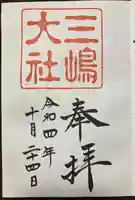 三嶋
大社
奉拝
令和四年
十月二十四日